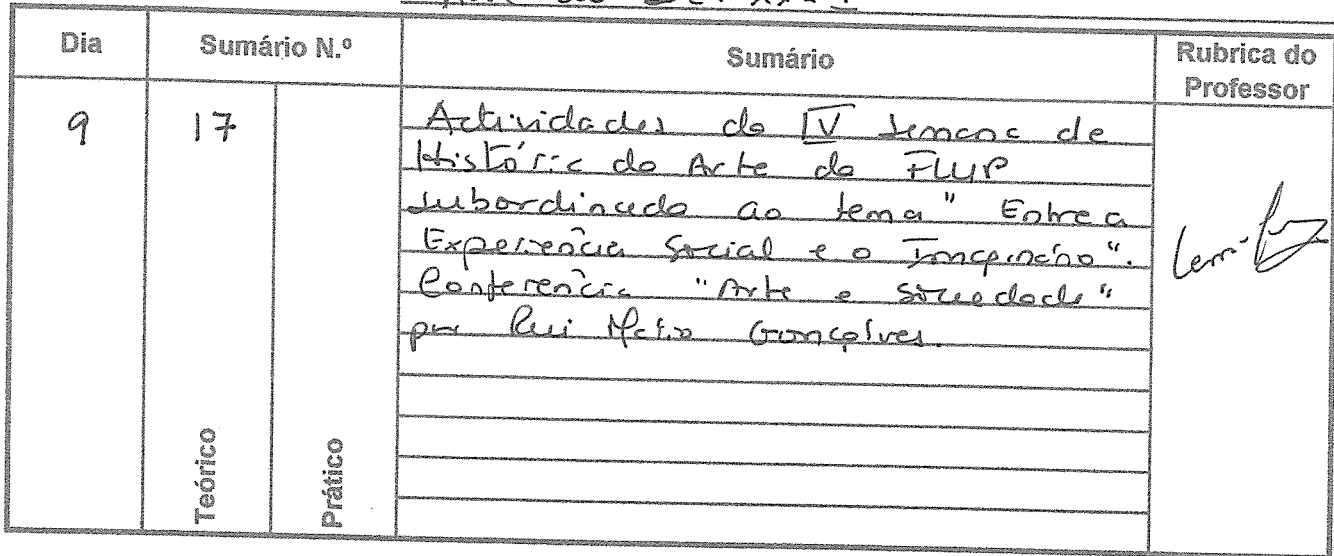 Dia Sumário N.º Sumário Rubrica do Professor
9 17
Actividades da IV Semana de
História da Arte da FLUP
subordinada ao tema "Entre a
Experiência Social e o Imaginário".
Conferência "Arte e Sociedade"
por Rui Mário Gonçalves.
Teórico Prático